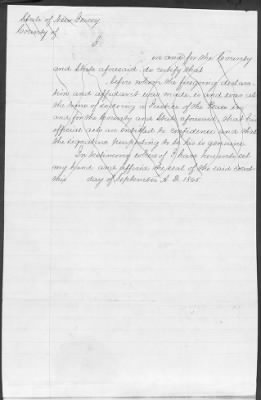 State of New Jersey
County of
I
in and for the County
and State aforesaid do certify that
before whom the foregoing declara
tion and affidavit was made is and was at
the time of so doing a Justice of the Peace in
and for the County and State aforesaid that his
official acts are entitled to confidence and that
the signature purporting to be his is genuine
In testimony whereof I have hereunto set
my hand and affixed the seal of the said Court
this day of September A. D. 1865